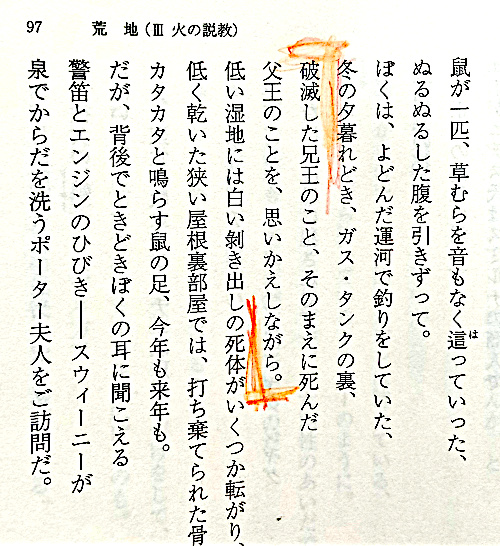 97 荒 地(Ⅲ 火の説教)
鼠が一匹、草むらを音もなく這っていった、
は
ぬるぬるした腹を引きずって。
ぼくは、よどんだ運河で釣りをしていた、
冬の夕暮れどき、ガス・タンクの裏、
破滅した兄王のこと、そのまえに死んだ
父王のことを、思いかえしながら。
低い湿地には白い剝き出しの死体がいくつか転がり、
低く乾いた狭い屋根裏部屋では、打ち棄てられた骨
カタカタと鳴らす鼠の足、今年も来年も。
だが、背後でときどきぼくの耳に聞こえる
警笛とエンジンのひびき――スウィーニーが
泉でからだを洗うポーター夫人をご訪問だ。